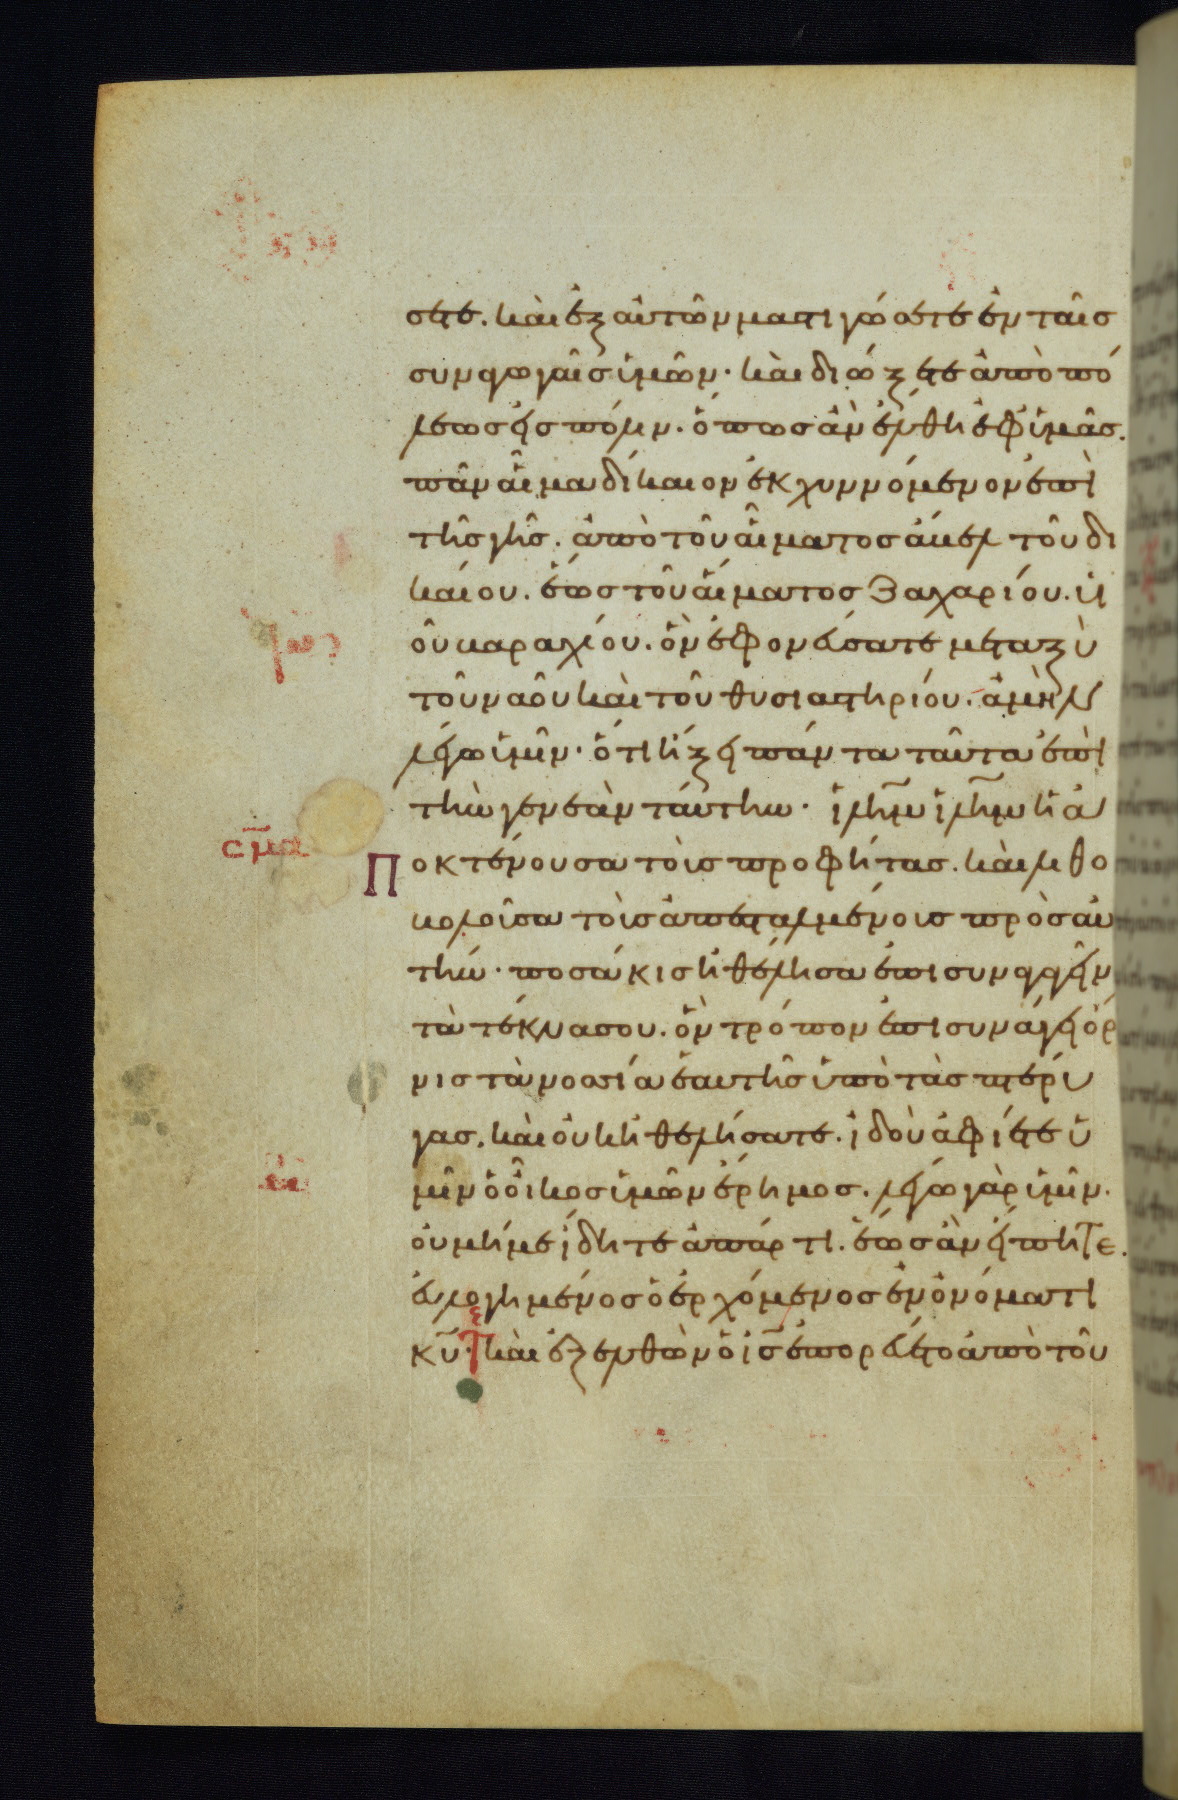 σετε. καὶ ἐξ αὐτῶν μαστιγώσετε ἐν ταῖς
συναγωγαῖς ὑμῶν· καὶ διώξετε ἀπὸ πό
λεως εἰς πόλιν. ὅπως ἂν ἔλθη ἐφ ὑμᾶς.
πᾶν αἷμα δίκαιον ἐκχυννόμενον ἐπὶ
τῆς γῆς. ἀπὸ τοῦ αἵματος ἄβελ τοῦ δι
καίου. ἕως τοῦ αἵματος Ζαχαρίου. υἱ
οῦ βαραχίου. ὃν ἐφονεύσατε μεταξὺ
τοῦ ναοῦ καὶ τοῦ θυσιαστηρίου. ἀμὴν
λέγω ὑμῖν· ὅτι ἥξει πάντα ταῦτα ἐπὶ
τὴν γενεὰν ταύτην. ἱλη̅μ ἱλη̅μ ἡ ἀ
Ποκτένουσα τοὺς προφήτας. καὶ λιθο
βολοῦσα τοὺς ἀπεσταλμένους πρὸς αὐ
τήν· ποσάκις ἠθέλησα ἐπισυναγαγεῖν
τὰ τέκνα σου. ὃν τρόπον ἐπισυνάγει ὄρ
νις τὰ νοσσία ἑαυτῆς ὑπὸ τὰς πτέρυ
γας. καὶ οὐκ ἠθελήσατε. ἰδοὺ ἀφίεται ὑ
μῖν ὁ οἶκος ὑμῶν ἔρημος. λέγω γὰρ ὑμῖν.
οὐ μή με ἴδητε ἀπάρτι. ἕως ἂν εἴπητε.
εὐλογημένος ὁ ἐρχόμενος ἐν ὀνόματι
κ̅υ̅. καὶ ἐξελθὼν ὁ ι̅ς̅ ἐπορεύετο ἀπὸ τοῦ
σ̅μ̅α